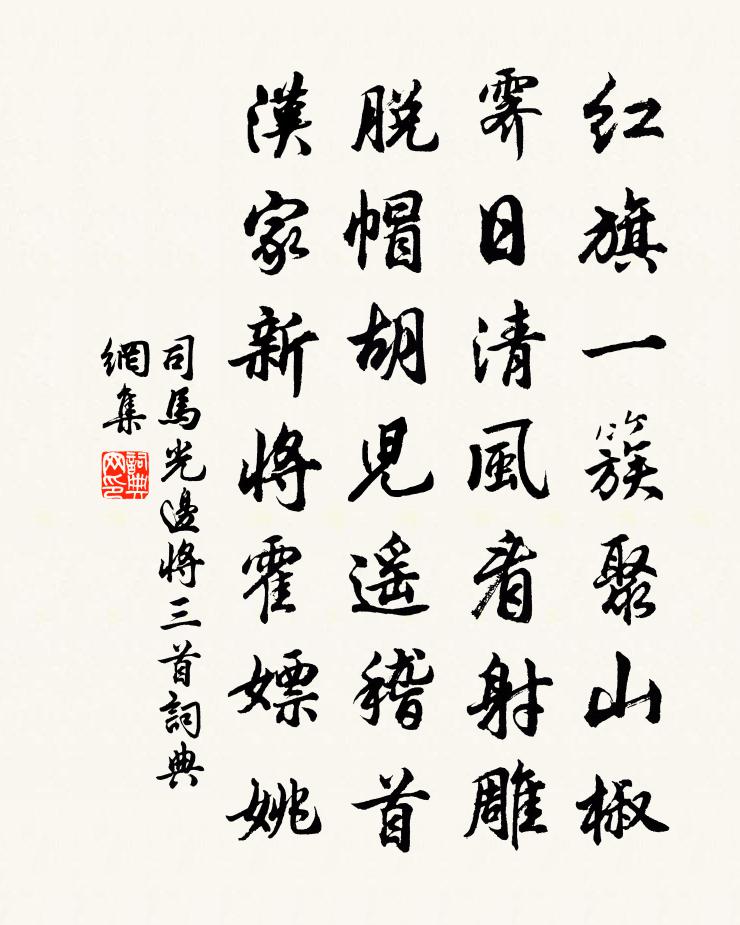 红旗一簇聚山椒
霽日清風看射雕
脫帽胡児遥稽首
漢家新將霍嫖姚
司馬光邊將三首詞典
網集
詞典网印